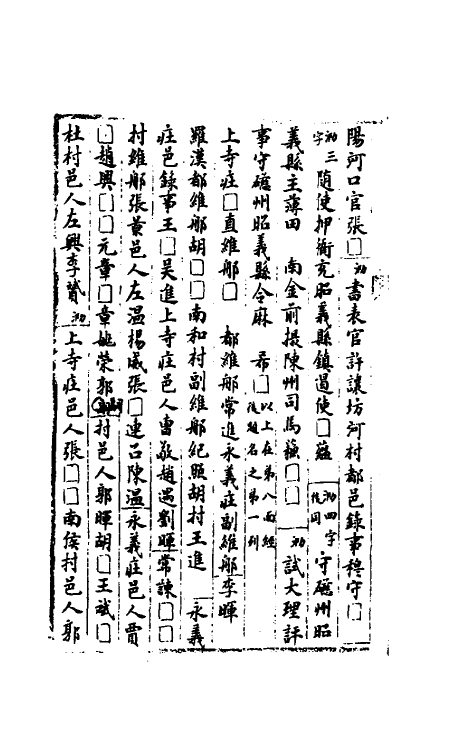 陽河口官張□泐書表官許讓坊河村都邑錄事穆守□
泐三字隨使押衙充昭義縣鎮遏使□蘊泐四字後同守磁州昭
義縣主薄田　南金前攝陳州司馬蘊□□泐試大理評
事守磁州昭義縣令麻　希□以上在第八面經後題名之第一列
上寺庄□直維那□　都維那常進永義莊副維那李暉
羅漢都維那胡□□南和村副維那紀顯胡村王進　永義
庄邑錄事王□吳進上寺庄邑人曹敬趙遇劉暉常諫□□
村維那張黃邑人左溫楊威張□連召陳溫永義庄邑人賈
□趙興□□元章□章姚榮郭村邑人郭暉胡□王斌□
杜村邑人左興李贇泐上寺庄邑人張□□南侯村邑人郭